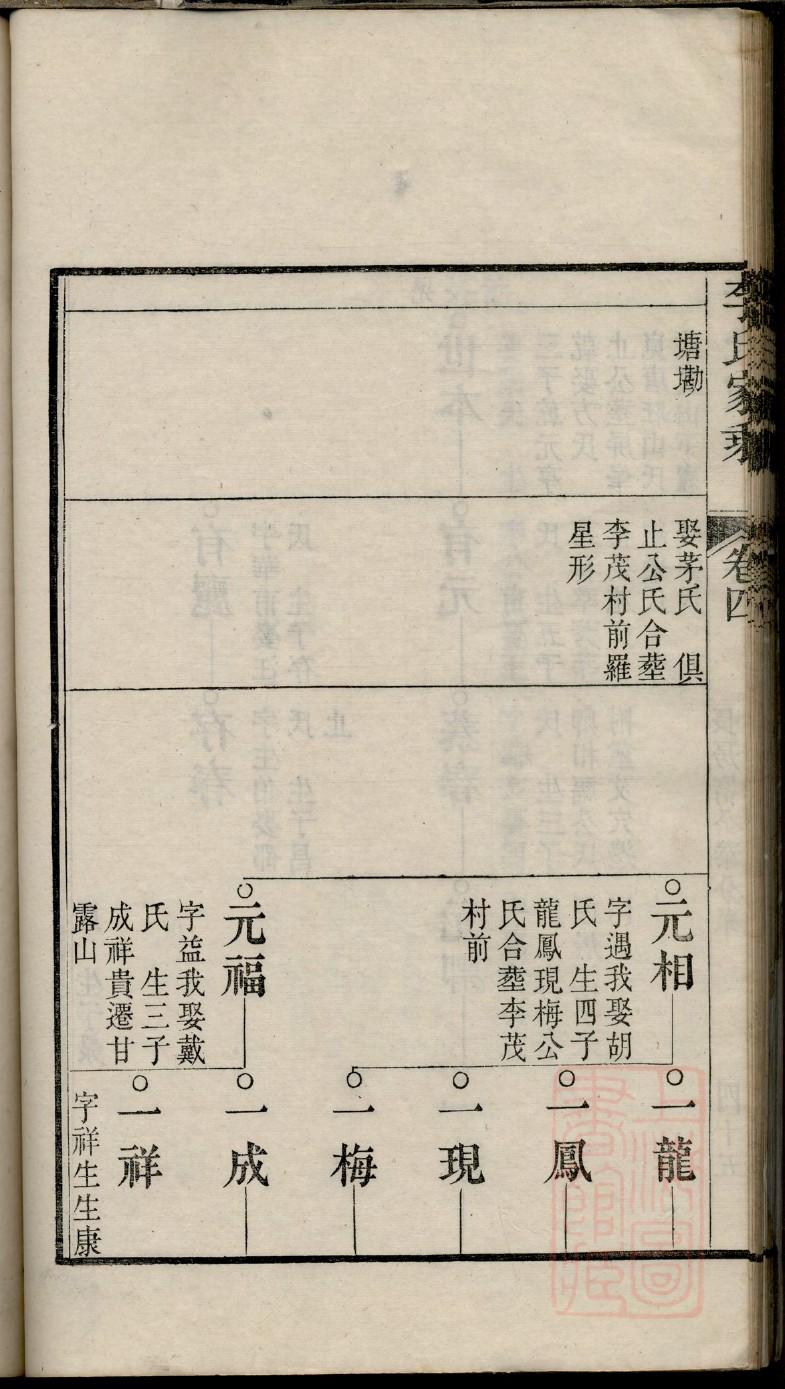 李氏家乘
卷四
塘塝
娶茅氏　俱
止公氏合塟
李茂村前羅
星形
元相
字遇我娶胡
氏　生四子
龍鳳現梅公
氏合塟李茂
村前
元福
字益我娶戴
氏　生三子
成祥貴遷甘
露山
一龍
一鳳
一現
一梅
一成
一祥
字祥生生康